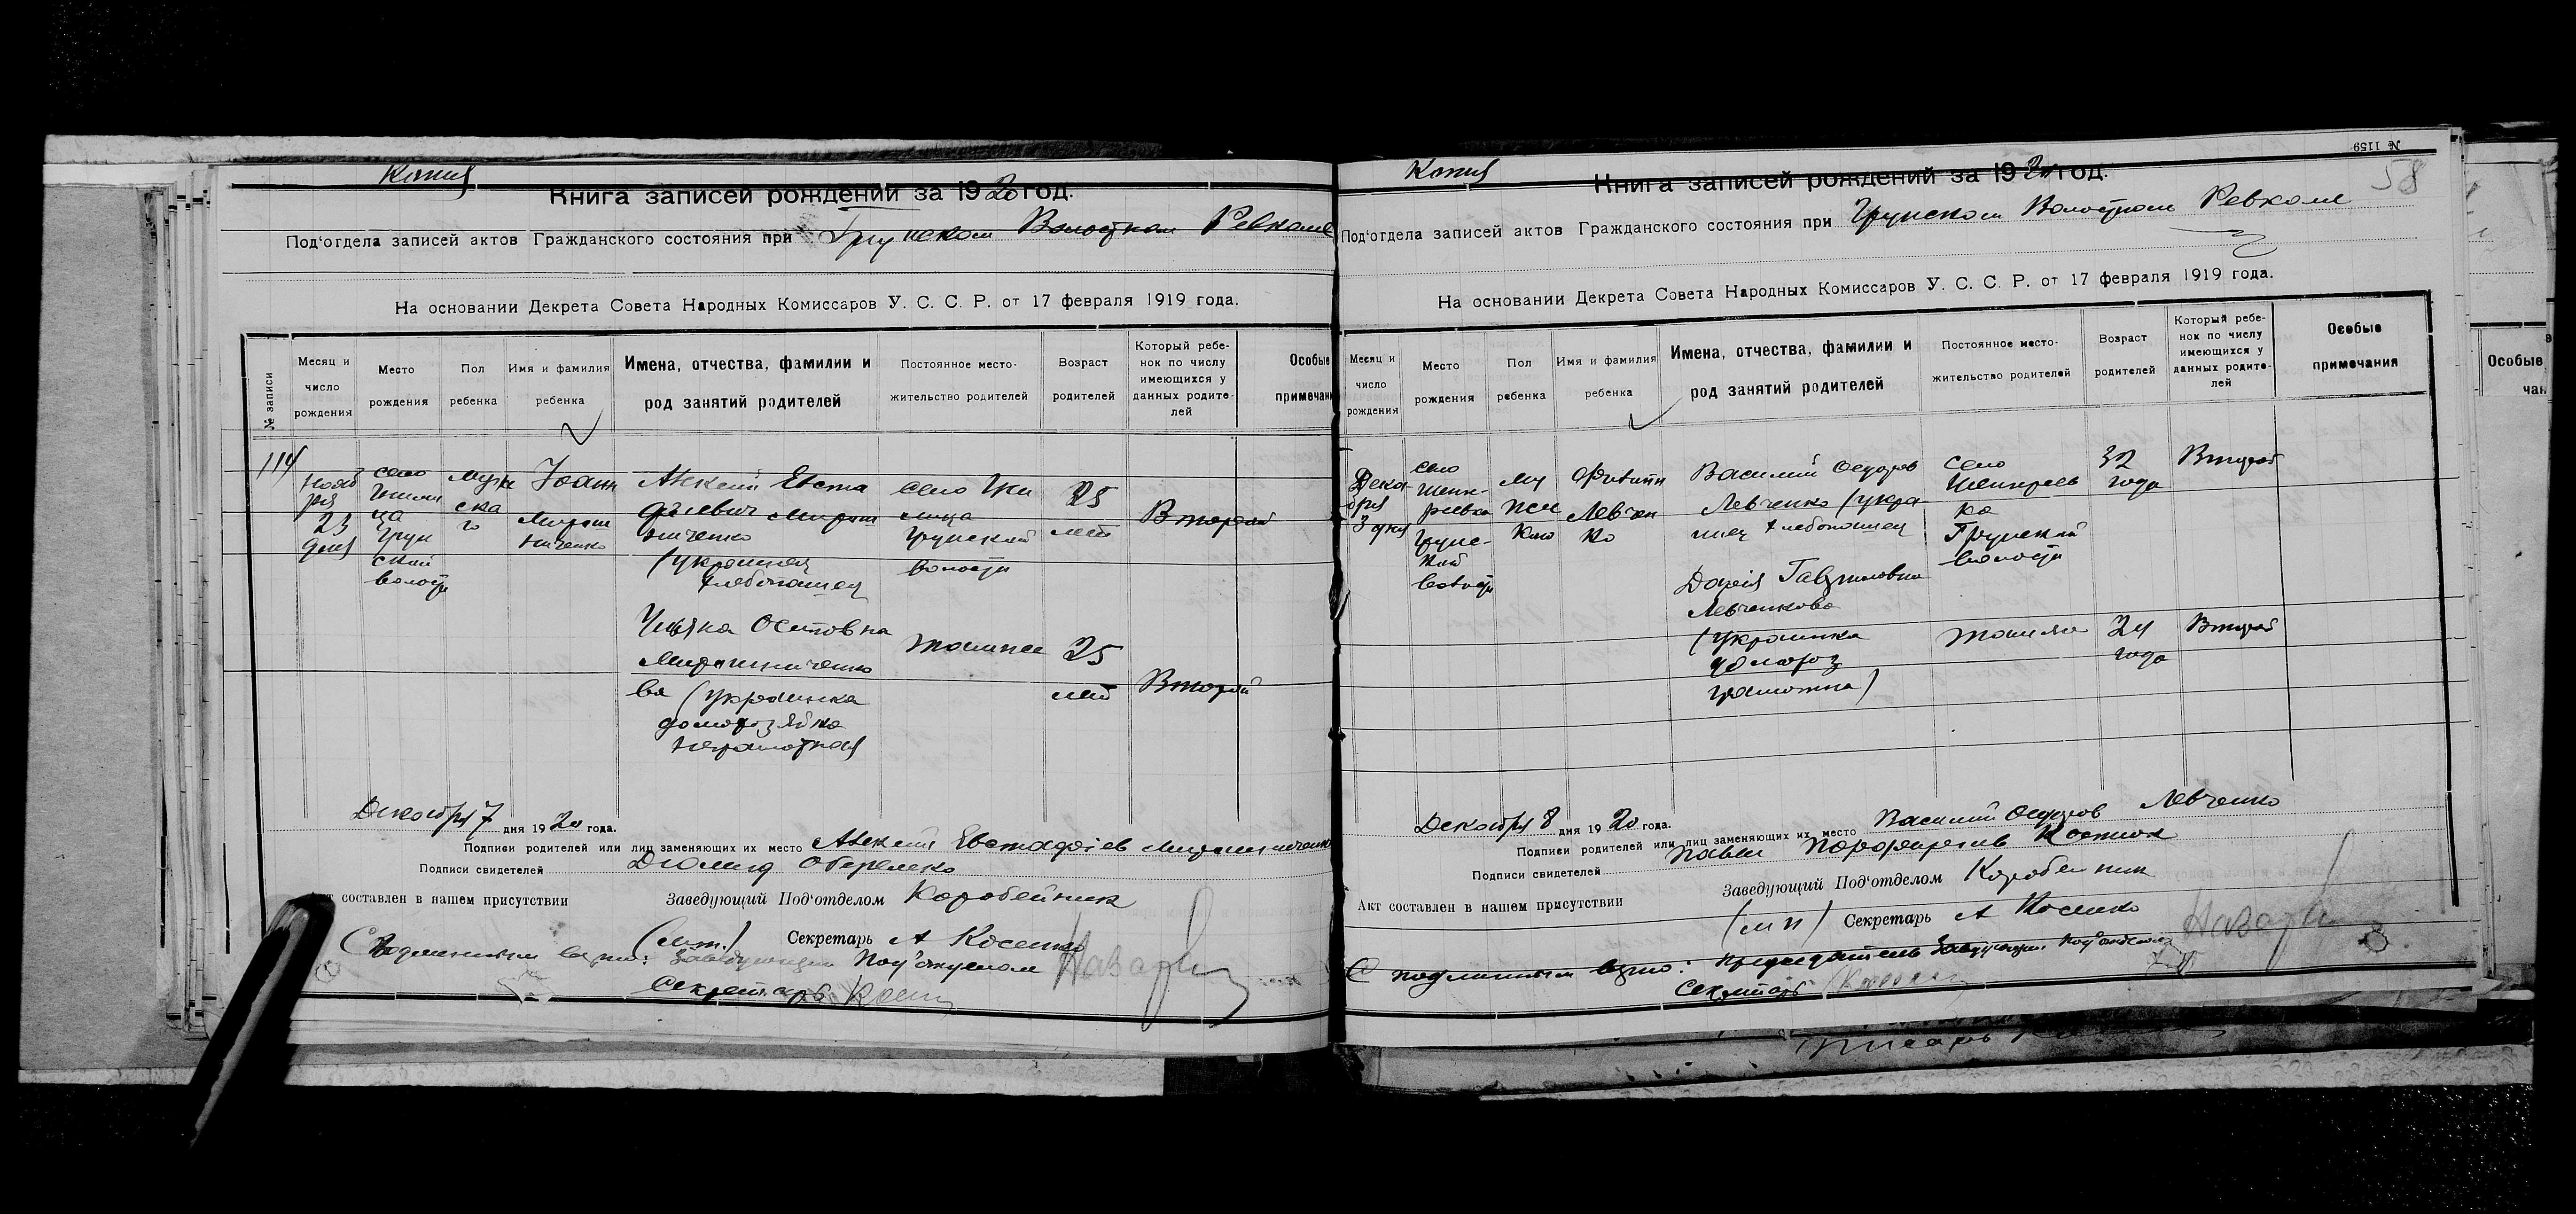 Копия
Книга записей рождений за 1920 год.
Под‘отдела записей актов Гражданского состояния при Грунском Волостном Ревкоме
На основании Декрета Совета Народных Комиссаров У. С. С. Р. от 17 февраля 1919 года.
№ записи
Месяц и число рождения
Место рождения
Пол ребенка
Имя и фамилия ребенка
Имена, отчества, фамилии и род занятий родителей
Постоянное местожительство родителей
Возраст родителей
Который ребенок по числу имеющихся у данных родителей
Особые
примечан
114
Нояб
ря
23
дня
село
Грун
ской
волости
муж
ска
го
Иоанн
Мирош
ниченко
Алексей Евста
фиевич Мирош
ниченко
(украинец
хлебопашец
село
Грунской
волости
25
лет
Второй
Ульяна Осиповна
Мирошниченко
ва (украинка
домохозяйка
неграмотная
тоже
25
лет
Второй
Декабря 7 дня 1920 года.
Подписи родителей или лиц заменяющих их место Алексей Евстафиев Мирошниченко
Подписи свидетелей Диомид
Акт составлен в нашем присутствии Заведующий Под‘отделом Коробейник
Секретарь А Косенко
С подлинным верно: Заведующий Подотделом
Секретарь
Копия
№ 1159
58
Книга записей рождений за 1920 год.
Под‘отдела записей актов Гражданского состояния при Грунском Волостном Ревкоме
На основании Декрета Совета Народных Комиссаров У. С. С. Р. от 17 февраля 1919 года.
Месяц и число рождения
Место рождения
Пол ребенка
Имя и фамилия ребенка
Имена, отчества, фамилии и род занятий родителей
Постоянное местожительство родителей
Возраст родителей
Который ребенок по числу имеющихся у данных родителей
Особые
примечания
Дека
бря
3 дня
село
Грунс-
кой
волости
Левчен
ко
Василий Федоров
Левченко (укра
инец хлебопашец
село
Грунской
волости
32
года
Второй
Дария Гавриловна
Левченкова
(украинка
домохоз
грамотна)
24
года
Второй
Декабря 8 дня 1920 года.
Подписи родителей или лиц заменяющих их место Василий Федоров Левченко
Подписи свидетелей Павел
Акт составлен в нашем присутствии Заведующий Под‘отделом Коробейник
(М П) Секретарь А Косенко
С подлинным верно: Председатель Заведующий Подотделом
Секретарь
Особые
чан